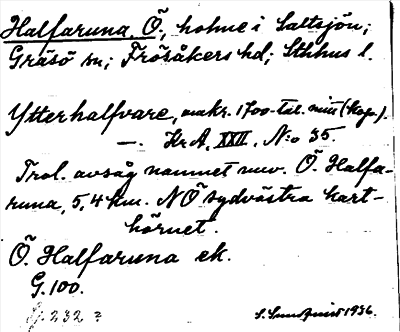 Halfaruna, Ö, holme i Saltsjön;
Gräsö sn; Frösåkers hd; Sthlms l.
Ytterhalfvare, omkr. 1700-tal. mitt (kop.).
—. Kr A, XXII, N:o 35.
Trol. avsåg namnet nuv. Ö. Halfa-
runa, 5,4 km. NÖ sydvästra kart-
hörnet.
Ö. Halfaruna ek.
G. 100.
G. 232 ?
1936.